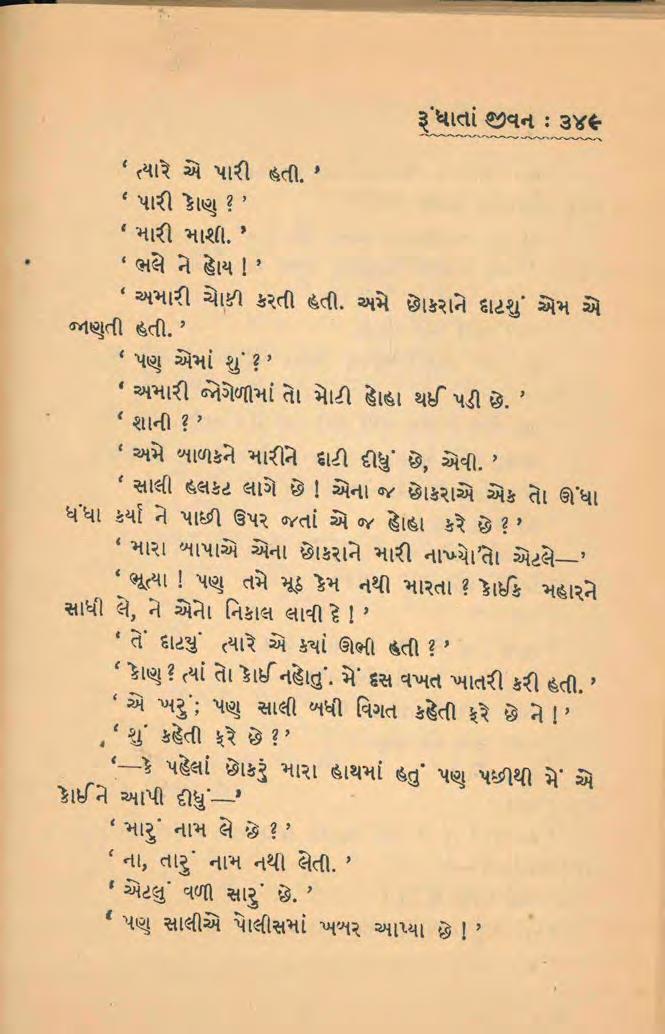 રૂંધાતાં જીવન : ૩૪૯
‘ ત્યારે એ પારી હતી. ’
‘ પારી કોણ ? ’
‘ મારી માશી. ’
‘ ભલે ને હોય ! ’
‘ અમારી ચોકી કરતી હતી. અમે છોકરાને દાટશું એમ એ
જાણતી હતી. ’
‘ પણ એમાં શું ? ’
‘ અમારી જોગેળીમાં તો મોટી હોહા થઈ પડી છે. ’
‘ શાની ? ’
‘ અમે બાળકને મારીને દાટી દીધું છે, એવી. ’
‘ સાલી હલકટ લાગે છે ! એના જ છોકરાએ એક તો ઊંધા
ધંધા કર્યા ને પાછી ઉપર જતાં એ જ હોહા કરે છે ? ’
‘ મારા બાપાએ એના છોકરાને મારી નાખ્યો’તો એટલે—’
‘ ભૂત્યા ! પણ તમે મૂઠ કેમ નથી મારતા ? કોઈક મહારને
સાધી લે, ને એનો નિકાલ લાવી દે ! ’
‘ તેં દાટ્યું ત્યારે એ ક્યાં ઊભી હતી ? ’
‘ કોણ ? ત્યાં તો કોઈ નહોતું. મેં દસ વખત ખાતરી કરી હતી. ’
‘ એ ખરું; પણ સાલી બધી વિગત કહેતી ફરે છે ને ! ’
‘ શું કહેતી ફરે છે ? ’
‘—કે પહેલાં છોકરું મારા હાથમાં હતું પણ પછીથી મેં એ
કોઈને આપી દીધું—’
‘ મારું નામ લે છે ? ’
‘ ના, તારું નામ નથી લેતી. ’
‘ એટલું વળી સારું છે. ’
‘ પણ સાલીએ પોલીસમાં ખબર આપ્યા છે ! ’